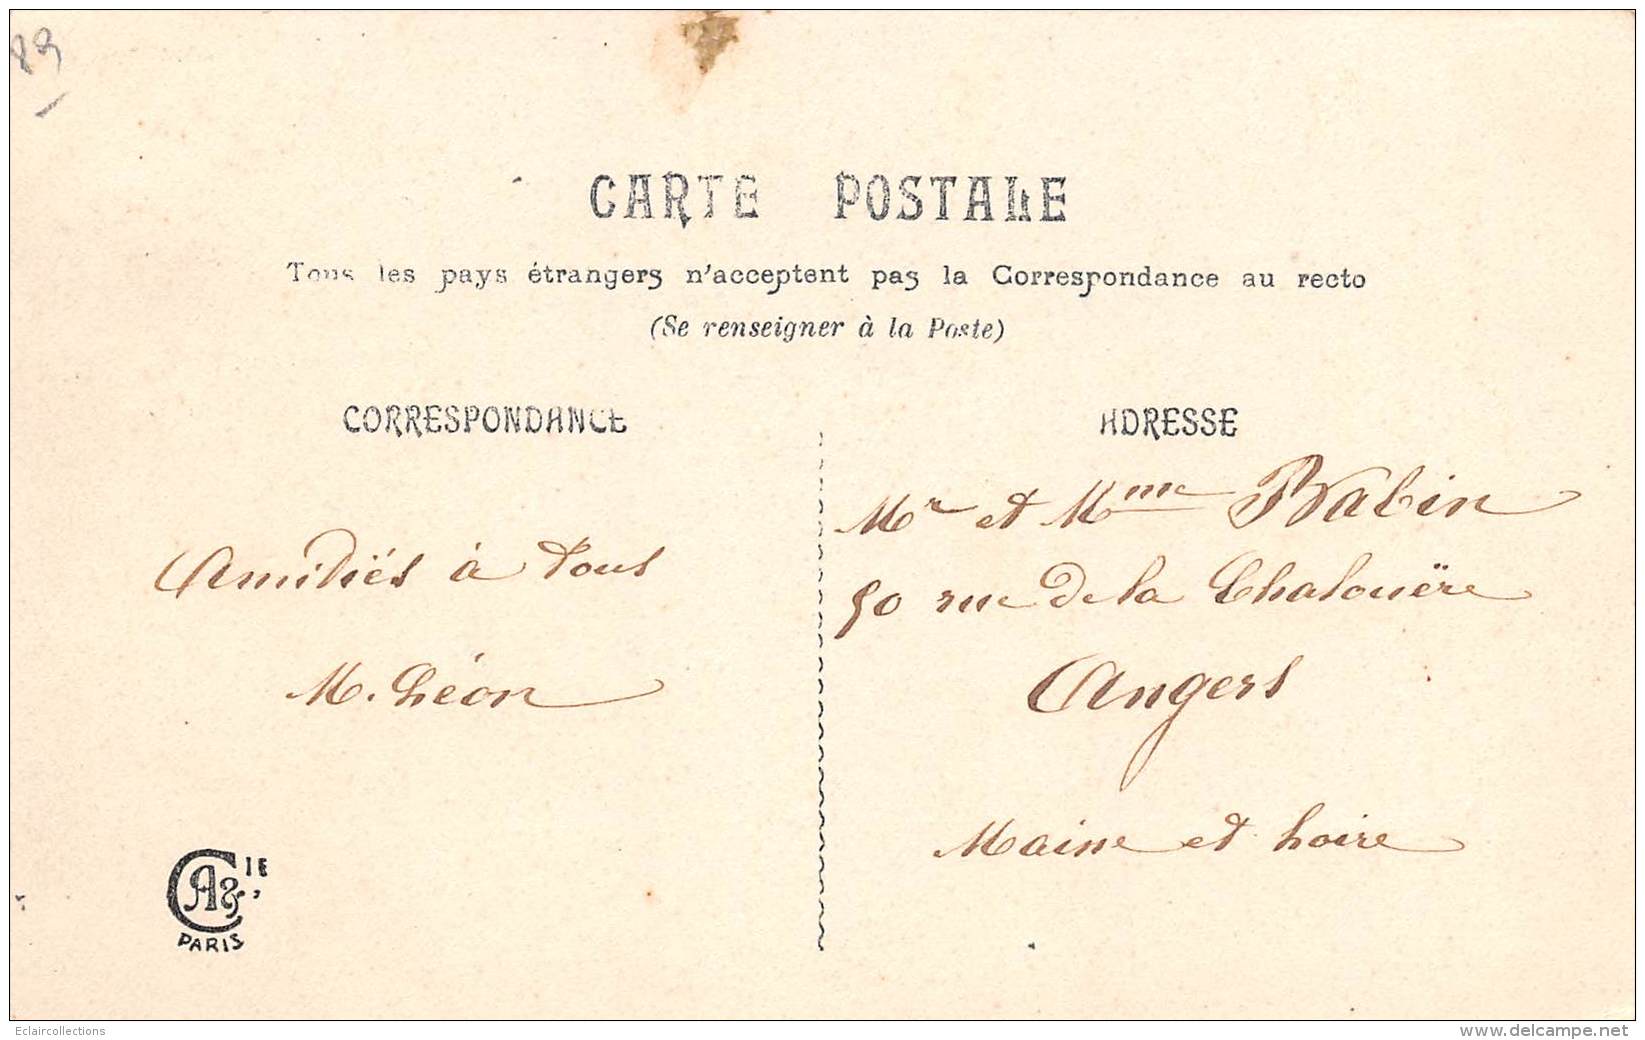 89
CARTE POSTALE
Tous les pays étrangers n'acceptent pas la Correspondance au recto
(Se renseigner à la Poste)
CORRESPONDANCE
Amitiés à tous
M. Léon
ADRESSE
Mr et Mme Babin
50 rue de la Chalouère
Angers
Maine et Loire
A & CIE
PARIS
Eclaircollections
www.delcampe.net